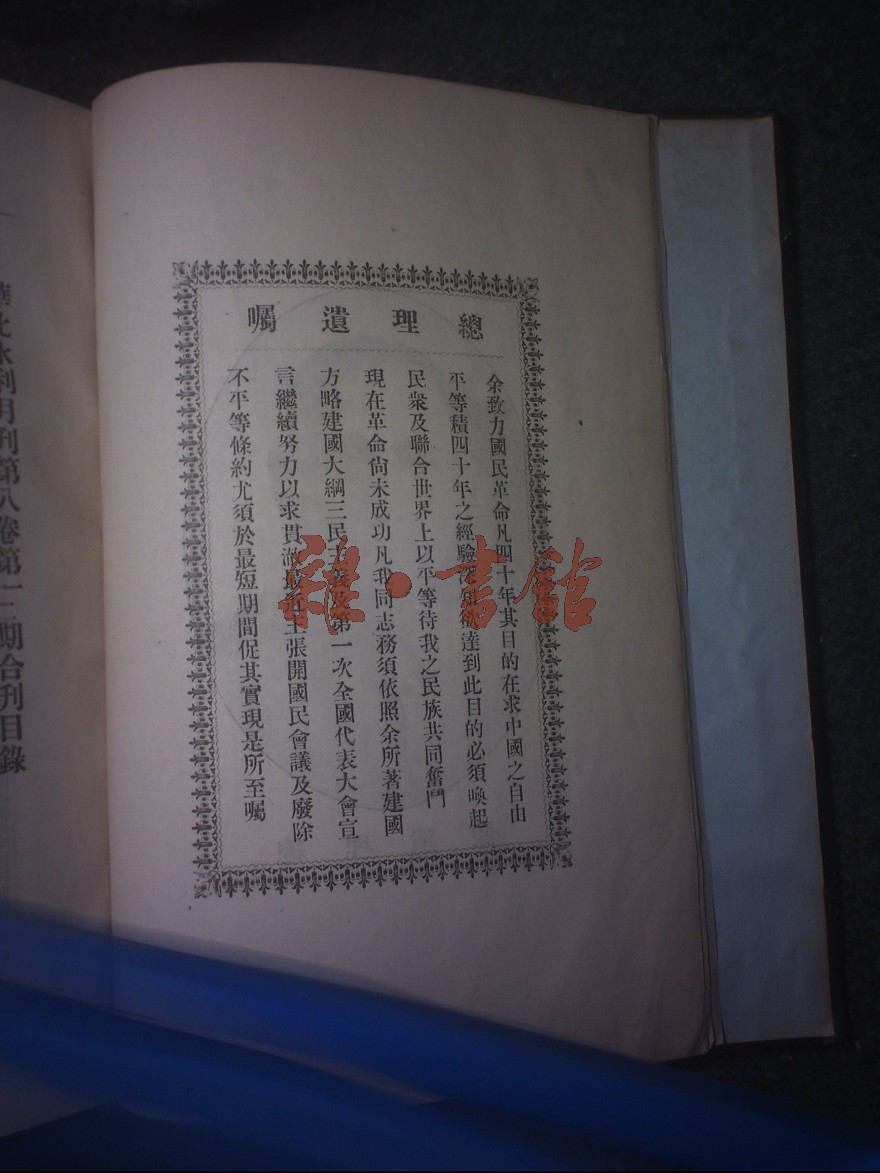 總理遺囑
余致力國民革命凡四十年其目的在求中國之自由
平等積四十年之經驗深知欲達到此目的必須喚起
民衆及聯合世界上以平等待我之民族共同奮鬥
現在革命尙未成功凡我同志務須依照余所著建國
方略建國大綱三民主義及第一次全國代表大會宣
言繼續努力以求貫澈最近主張開國民會議及廢除
不平等條約尤須於最短期間促其實現是所至囑
雜·書館
華北水利月刊第八卷第十二期合刊目錄